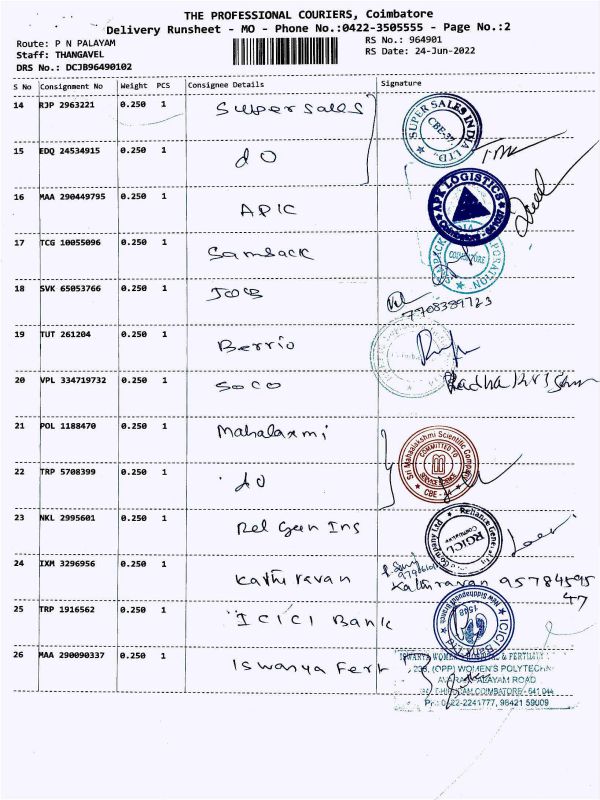 THE PROFESSIONAL COURIERS, Coimbatore
Delivery Runsheet - MO - Phone No.:0422-3505555 - Page No.:2
Route: P N PALAYAM
RS No.: 964901
Staff: THANGAVEL
RS Date: 24-Jun-2022
DRS No.: DCJB96490102
S No Consignment No Weight PCS Consignee Details Signature
14 RJP 2963221 0.250 1 Super sales
SUPER SALES INDIA LTD. CBE-
15 EDQ 24534915 0.250 1 dO
16 MAA 290449795 0.250 1 APIC
APK LOGISTICS
17 TCG 10055096 0.250 1 Samsack
COIMBATORE
18 SVK 65053766 0.250 1
7708389723
19 TUT 261204 0.250 1 Berrio
20 VPL 334719732 0.250 1 SOCO
21 POL 1188470 0.250 1 Mahalaxmi
Sri Mahaalakshmi Scientific Company
COMMITTED TO
SERVICE SCIENCE
CBE - 44
22 TRP 5708399 0.250 1 dO
23 NKL 2995601 0.250 1 Rel Gen Ins
RGICL
24 IXM 3296956 0.250 1 Kathiravan
Kathiravan 95784595
47
25 TRP 1916562 0.250 1 ICICI Bank
ICICI Bank Ltd
1588
26 MAA 290090337 0.250 1 Iswarya Fert
ISWARYA WOMEN HOSPITAL & FERTILITY
(OPP) WOMEN'S POLYTECHNIC
AVARAMPALAYAM ROAD
COIMBATORE - 641 044
Ph.: 0422-2241777, 98421 59009